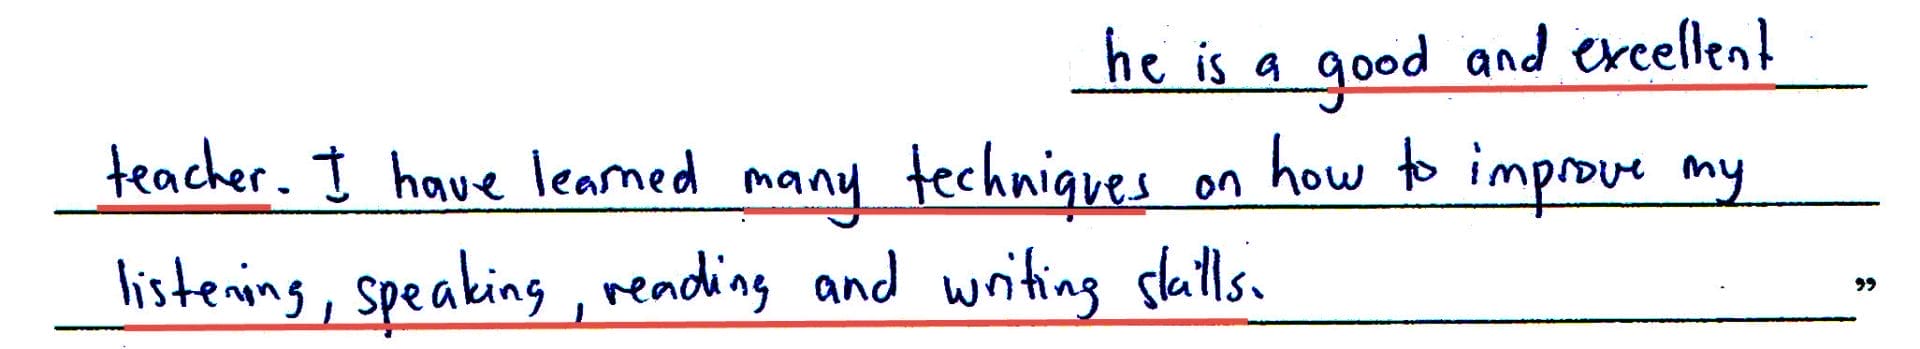 he is a good and excellent
teacher. I have learned many techniques on how to improve my
listening, speaking, reading and writing skills. ”